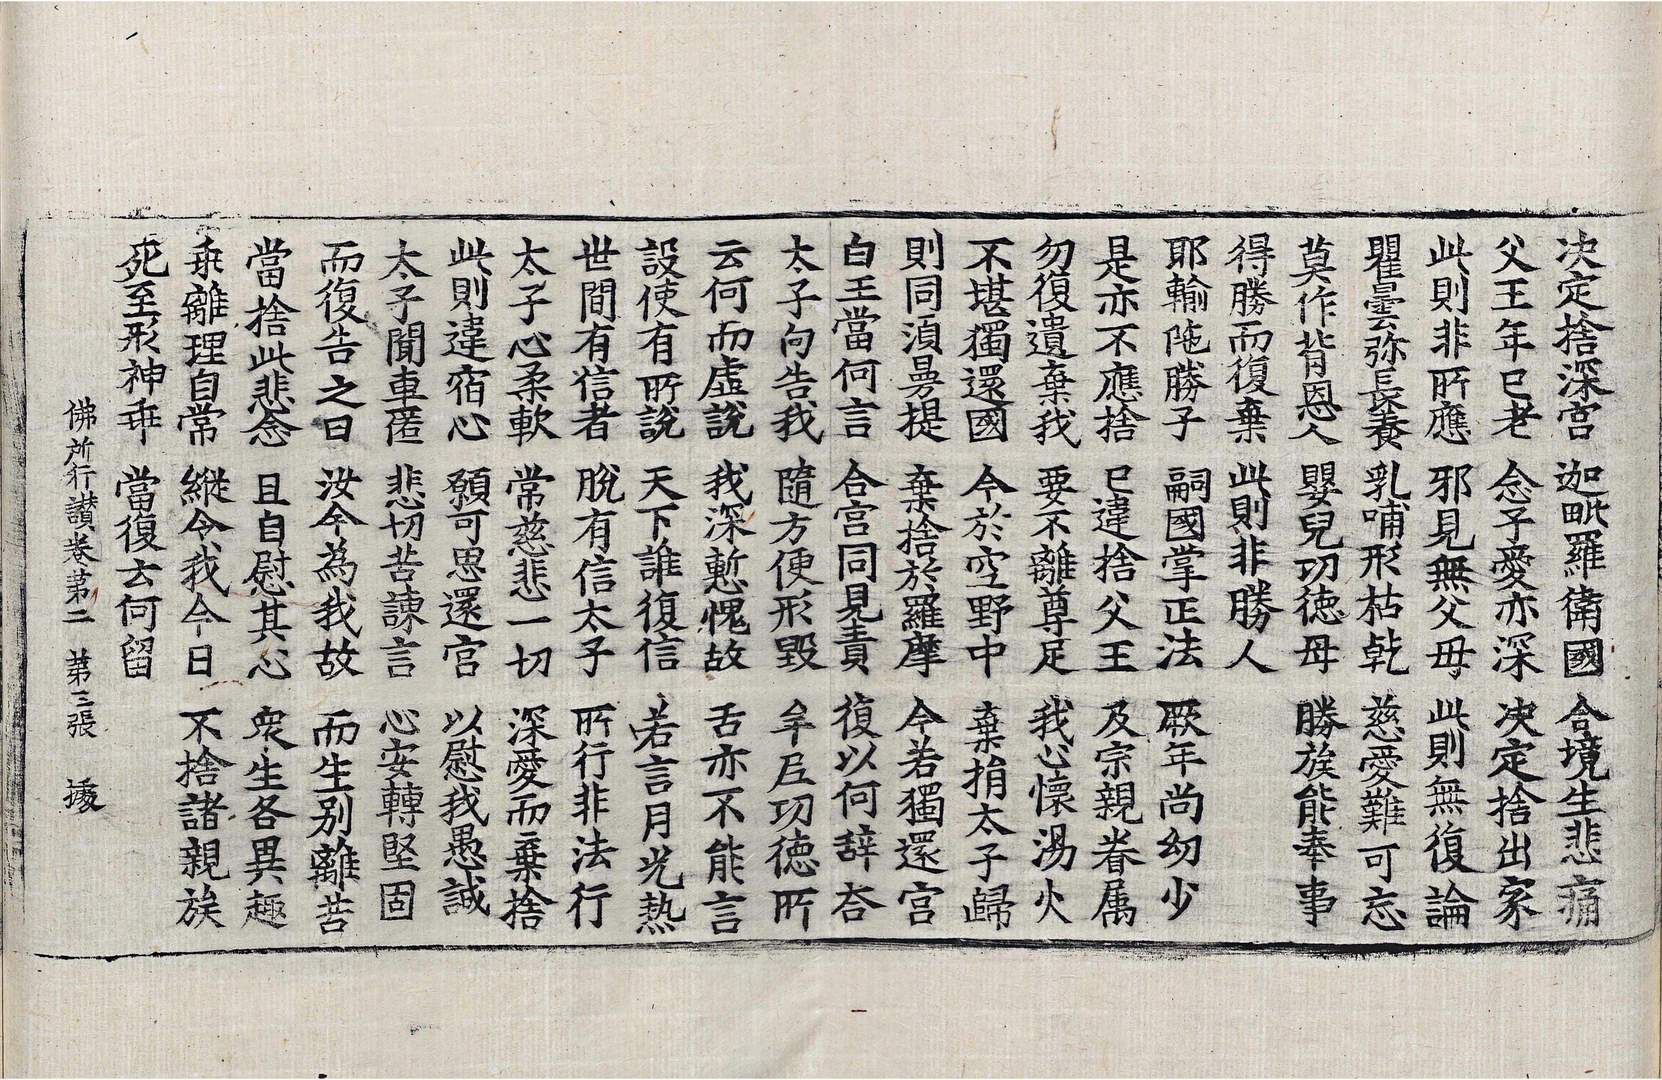 決定捨深宮 迦毗羅衛國 合境生悲痛
父王年已老 念子愛亦深 決定捨出家
此則非所應 邪見無父母 此則無復論
瞿曇弥長養 乳哺形枯乾 慈愛難可忘
莫作背恩人 嬰兒功徳母 勝族能奉事
得勝而復棄 此則非勝人
耶輸陁勝子 嗣國掌正法 厥年尚幼少
是亦不應捨 已違捨父王 及宗親眷属
勿復遺棄我 要不離尊足 我心懷湯火
不堪獨還國 今於空野中 棄捐太子歸
則同湏曼提 棄捨於羅摩 今若獨還宮
白王當何言 合宮同見責 復以何辞荅
太子向告我 隨方便形毀 牟尼功徳所
云何而虛說 我深慙愧故 舌亦不能言
設使有所說 天下誰復信 若言月光熱
世間有信者 脫有信太子 所行非法行
太子心柔軟 常慈悲一切 深愛而棄捨
此則違宿心 願可思還宮 以慰我愚誠
太子聞車匿 悲切苦諫言 心安轉堅固
而復告之曰 汝今為我故 而生別離苦
當捨此悲念 且自慰其心 衆生各異趣
乖離理自常 縱令我今日 不捨諸親族
死至形神乖 當復云何留
佛所行讃卷第二 第三張 墁